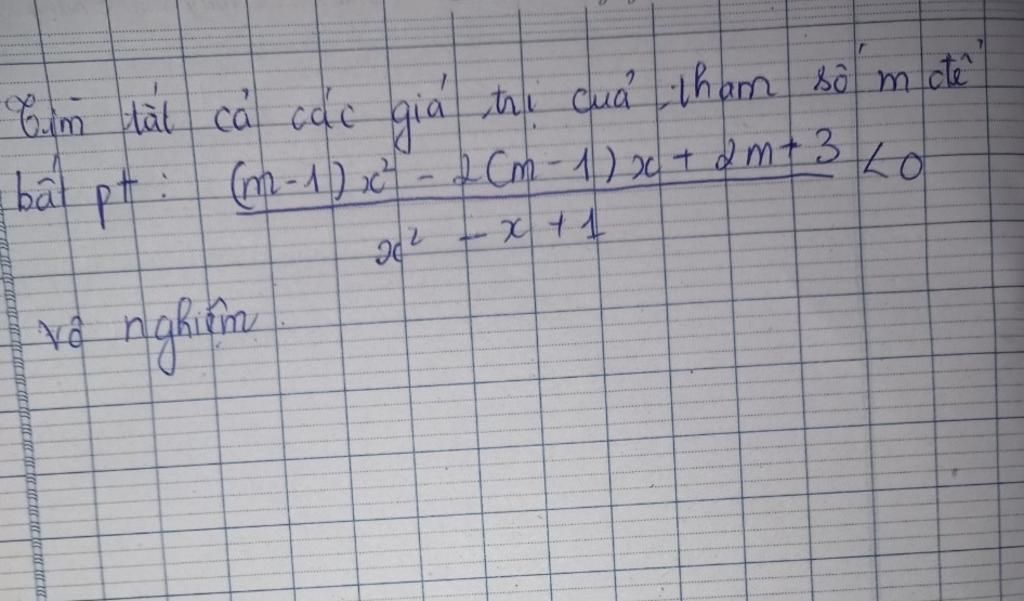 Tìm tất cả các giá trị cuả tham số m để
bất pt : (m-1)x² - 2(m-1)x + 2m+3 < 0
x² - x + 1
vô nghiệm.